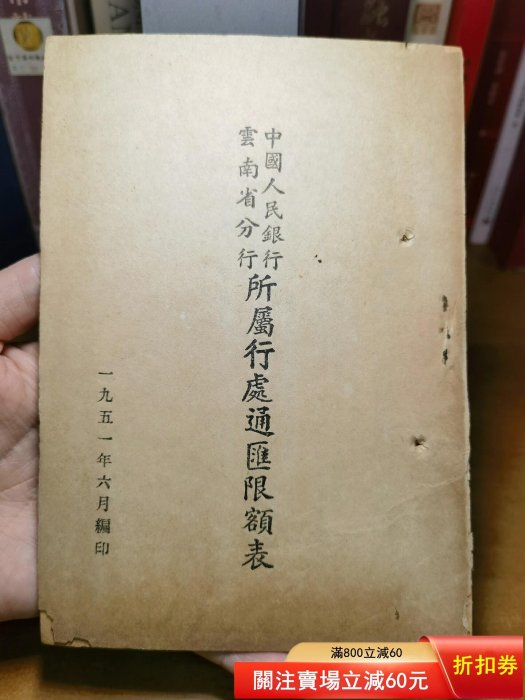 中國人民銀行
雲南省分行
所屬行處通匯限額表
一九五一年六月編印
滿800立減60
關注賣場立減60元
折扣券